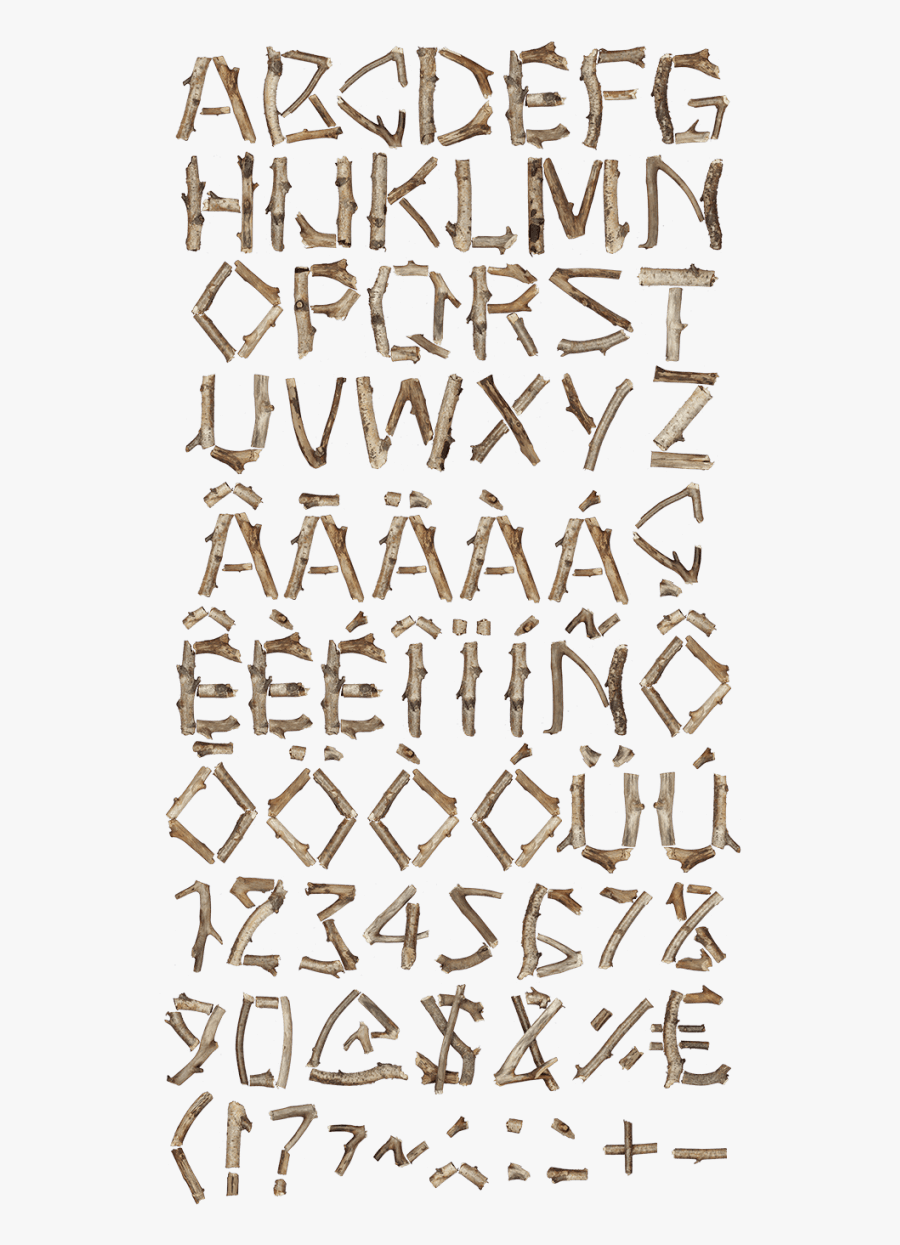 ABCDEFG
HIJKLMN
OPQRST
UVWXYZ
ÂĀÄÀÁÇ
ÊÈÉÎÏÍÑÔ
ŌÖÒÓÜÚ
12345678
90@$&%€
(!?
+-